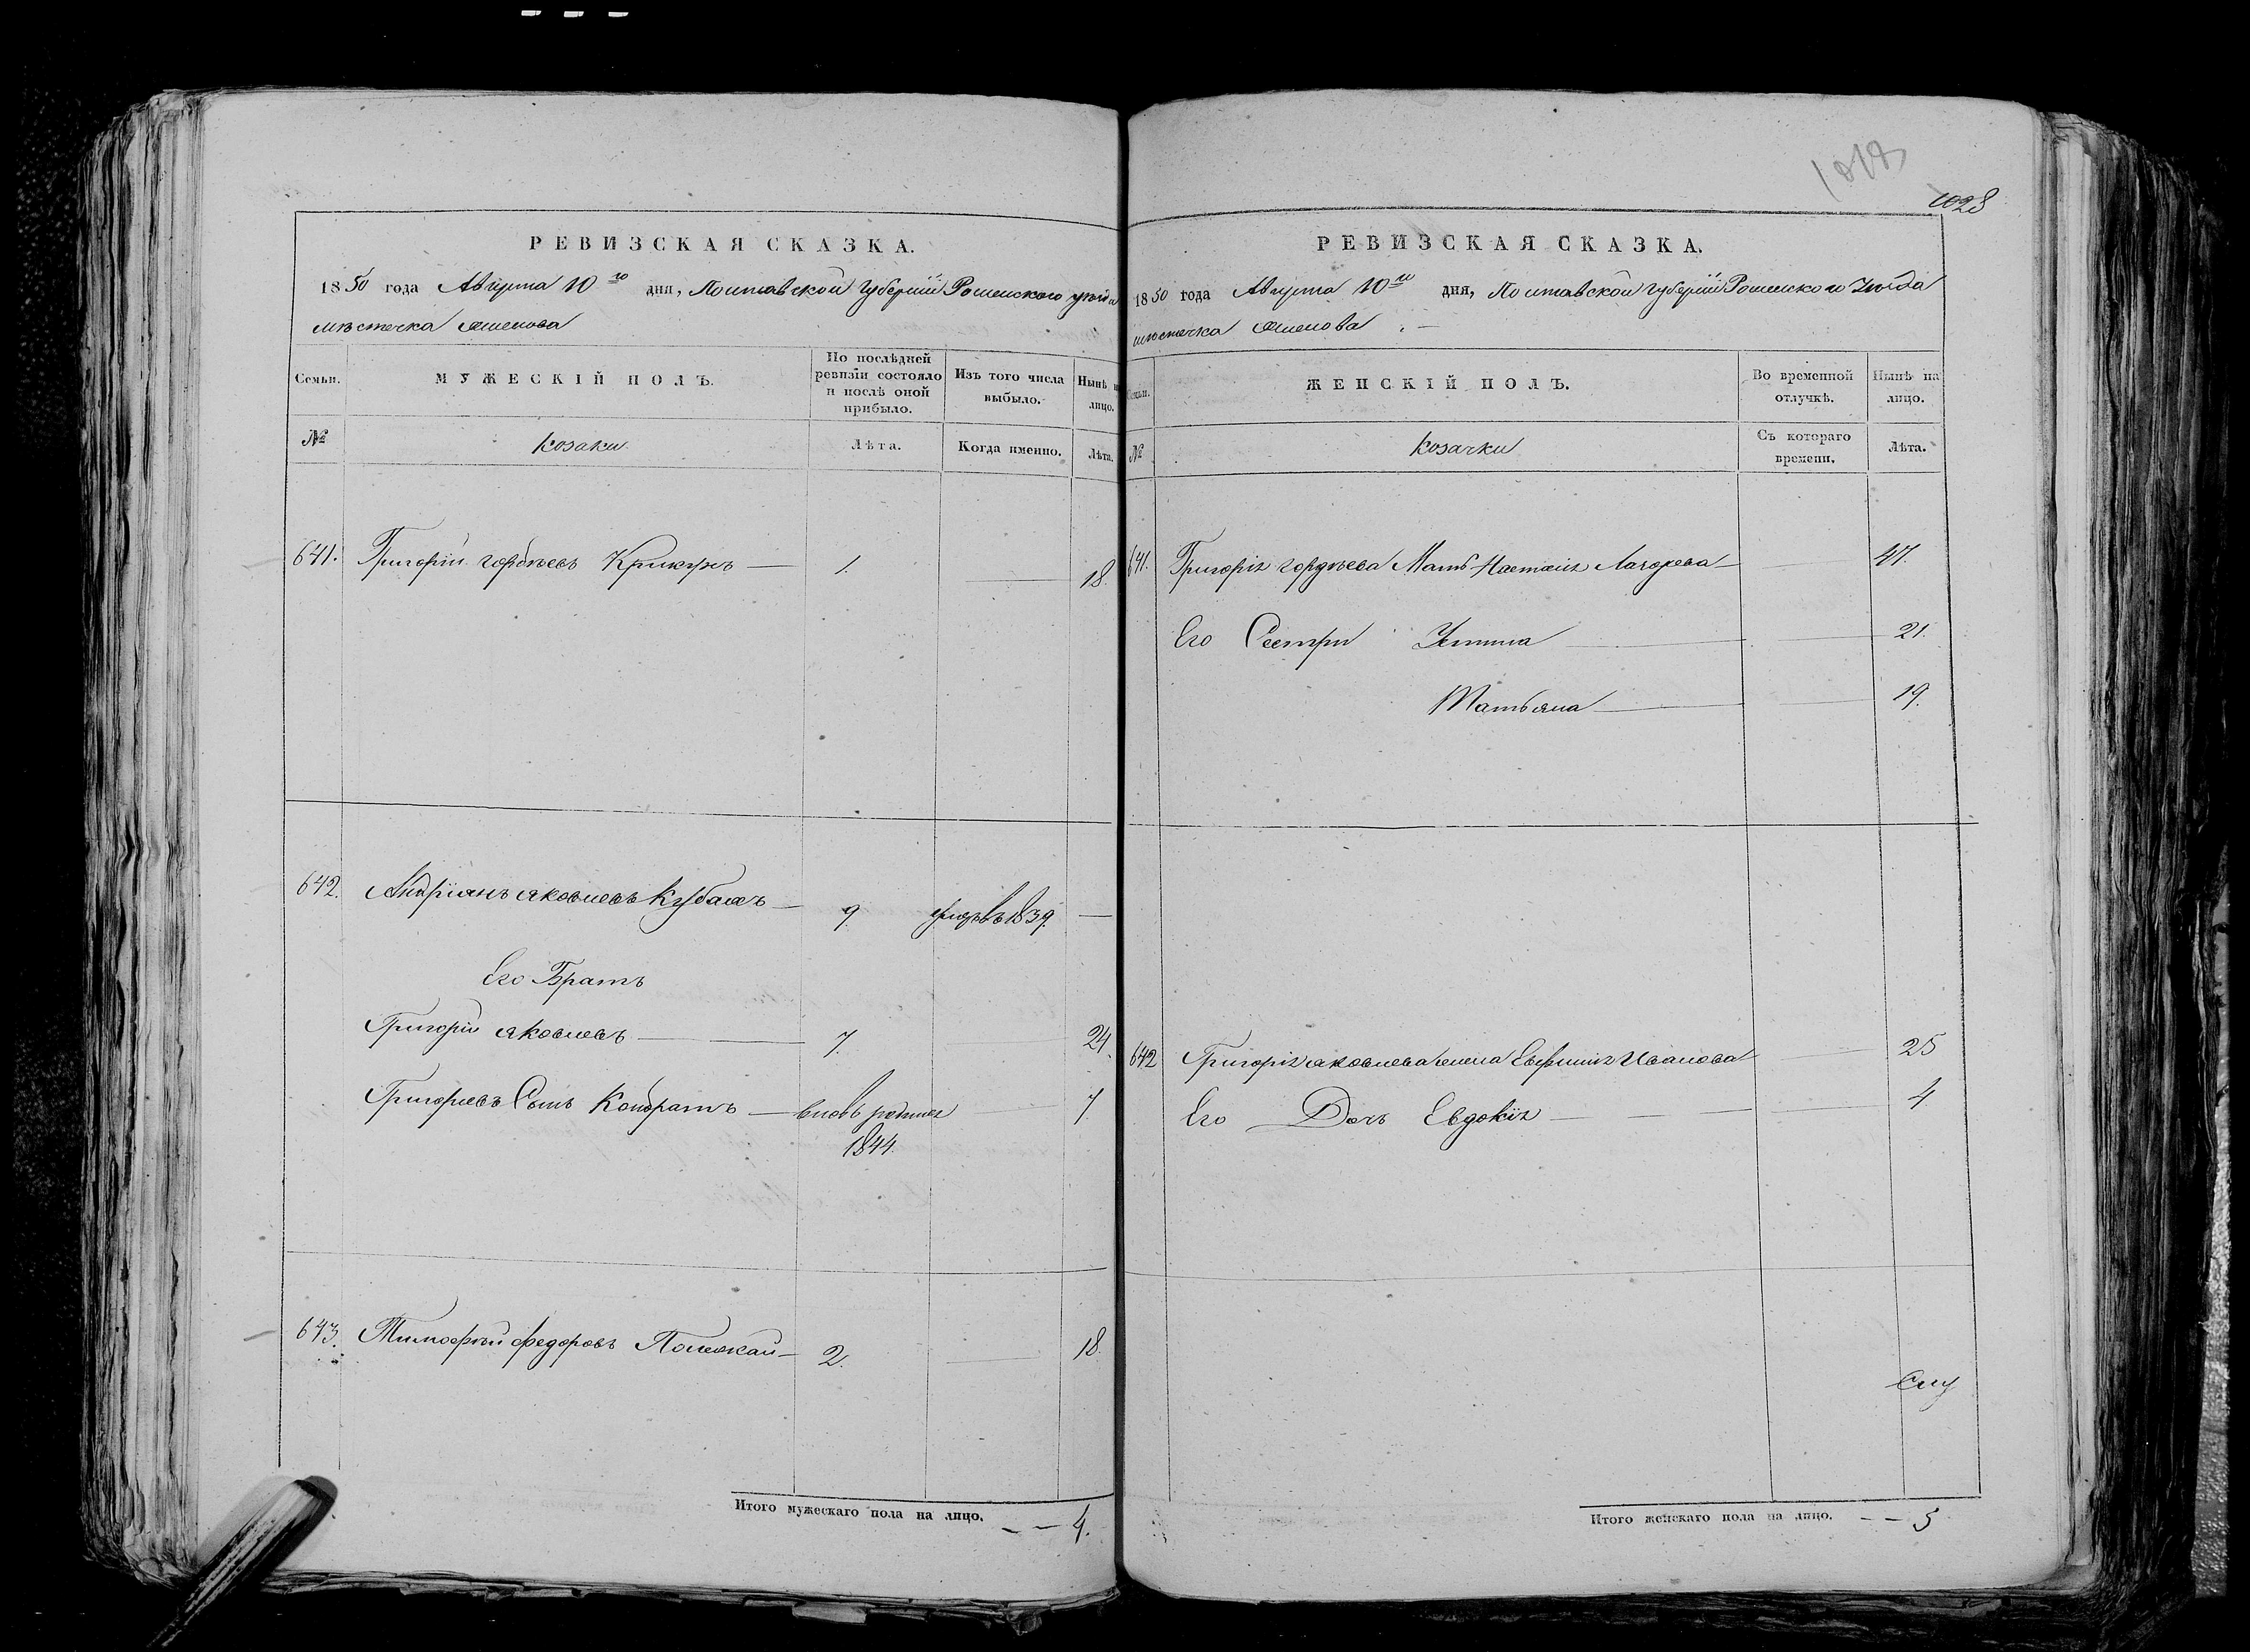 РЕВИЗСКАЯ СКАЗКА.
1850 года Августа 10го дня, Полтавской Губерніи Роменского уезда
местечка
Семьи.
МУЖЕСКІЙ ПОЛЪ.
По послѣдней ревизіи состояло и послѣ оной прибыло.
Изъ того числа выбыло.
Нынѣ на лицо.
№
козаки
Лѣта.
Когда именно.
Лѣта.
641. Григорій Гордѣевъ Крикунъ — 1. 18.
642. Андріянъ Яковлевъ Кубахъ — 9. умеръ въ 1839. —
Его Братъ
Григорій Яковлевъ — 7. 24.
Григориевъ Сынъ Кондратъ — вновь родился 7
1844.
643. Тимофей Федоровъ — 2. — 18.
Итого мужескаго пола на лицо. — — 4.
1018
1028
РЕВИЗСКАЯ СКАЗКА.
1850 года Августа 10го дня, Полтавской Губерніи Роменского Уезда
местечка
Семьи.
ЖЕНСКІЙ ПОЛЪ.
Во временной отлучкѣ.
Нынѣ на лицо.
№
козачки
Съ котораго времени.
Лѣта.
641. Григорія Гордѣева Мать Настасія — 47.
Его Сестри Устина — 21.
Татьяна — 19.
642 Григорія Яковлева жена Евфимія Иванова — 25
Его Дочь Евдокія — 4
Итого женскаго пола на лицо. — — 5